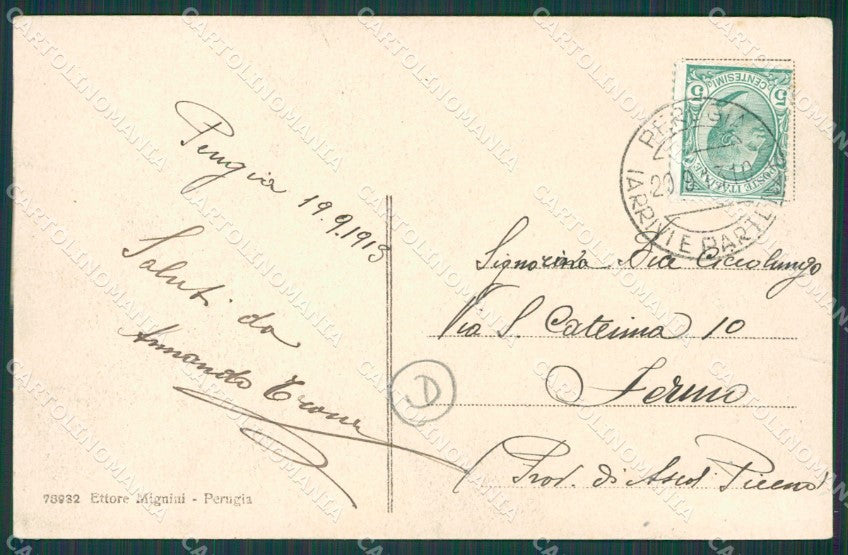 Perugia 19.9.1913
Saluti da
Armando
78932 Ettore Mignini - Perugia
5 CENTESIMI 5
POSTE ITALIANE
PERUGIA
20
(ARRIVI E PARTENZE)
Signorina
Via S. Caterina 10
Fermo
(Prov. di Ascoli Piceno
D
CARTOLINOMANIA